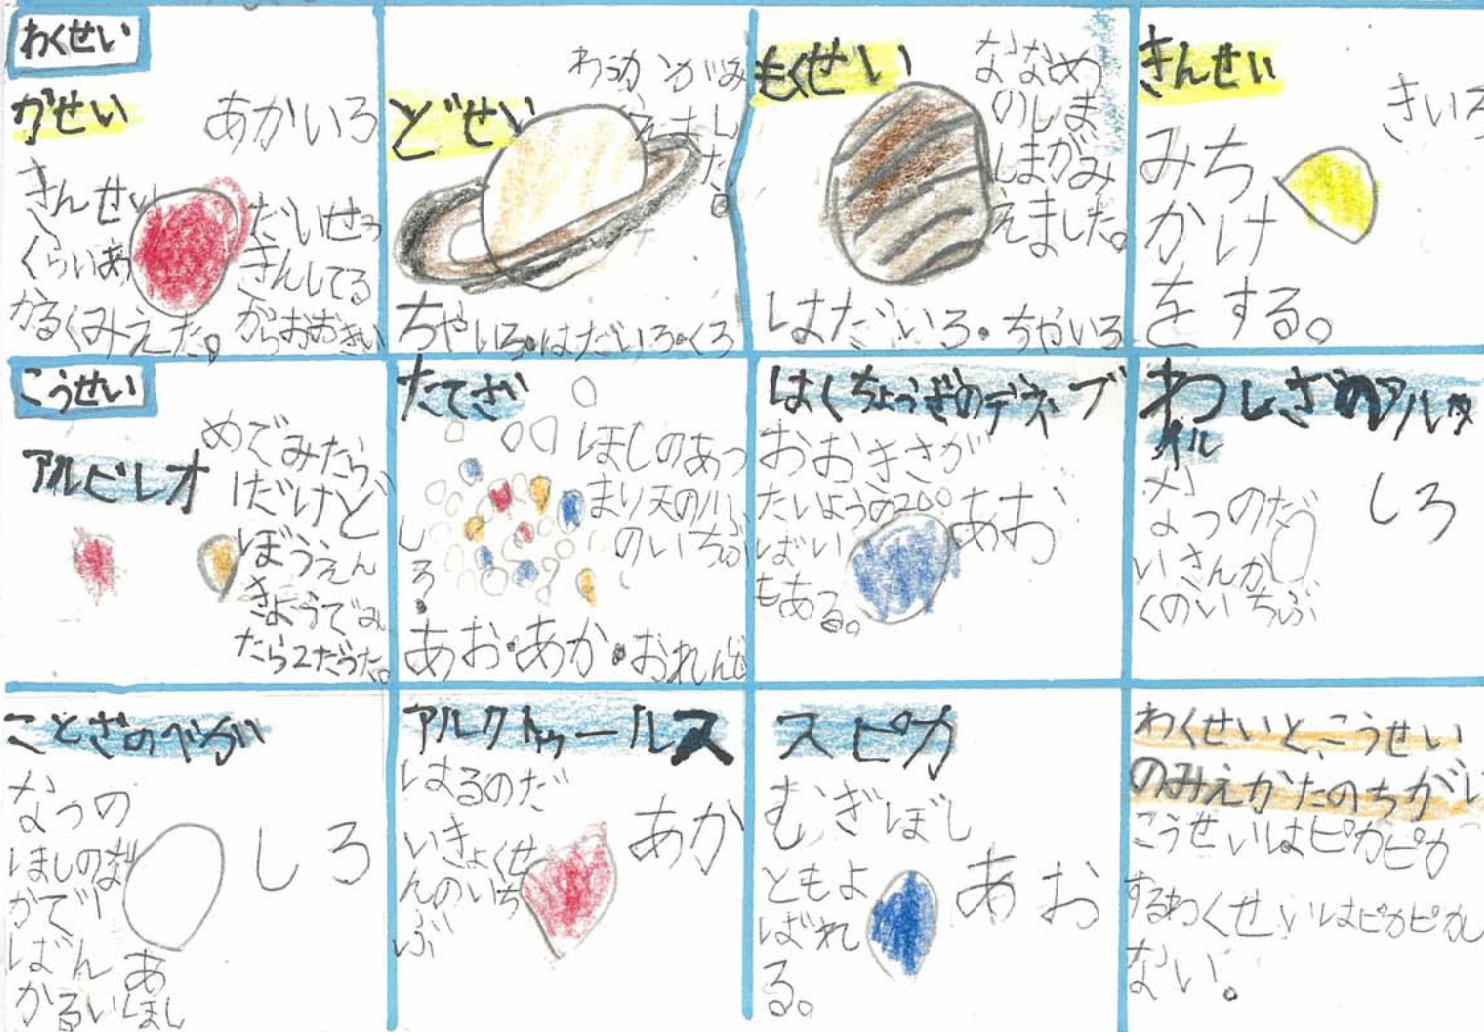 わくせい
かせい
あかいろ
きんせい
くらいあ
かるくみえた。
だいせっ
きんしてる
からおおきい
どせい
わっか
がみ
えまし
た。
ちゃいろ・はだいろ・くろ
もくせい
ななめ
のしま
しまがみ
えました。
はだいろ・ちゃいろ
きんせい
きいろ
みち
かけ
をする。
こうせい
アルビレオ
めでみたら
1だけど
ぼうえん
きょうでみ
たら2だった。
たてざ
ほしのあつ
まり天の川
のいちぶ
しろ・
あお・あか・おれんじ
はくちょうざのデネブ
おおきさが
たいようの200
ばい
もある。
あお
わしざのアルタ
イル
しろ
なつのだ
いさんか
くのいちぶ
ことざのべが
なつの
ほしのな
かで1
ばんあ
かるいほし
しろ
アルクトゥールス
はるのだ
いきょくせ
んのいち
ぶ
あか
スピカ
むぎぼし
ともよ
ばれ
る。
あお
わくせいと、こうせい
のみえかたのちがい
こうせいはピカピカ
するわくせいはピカピカし
ない。